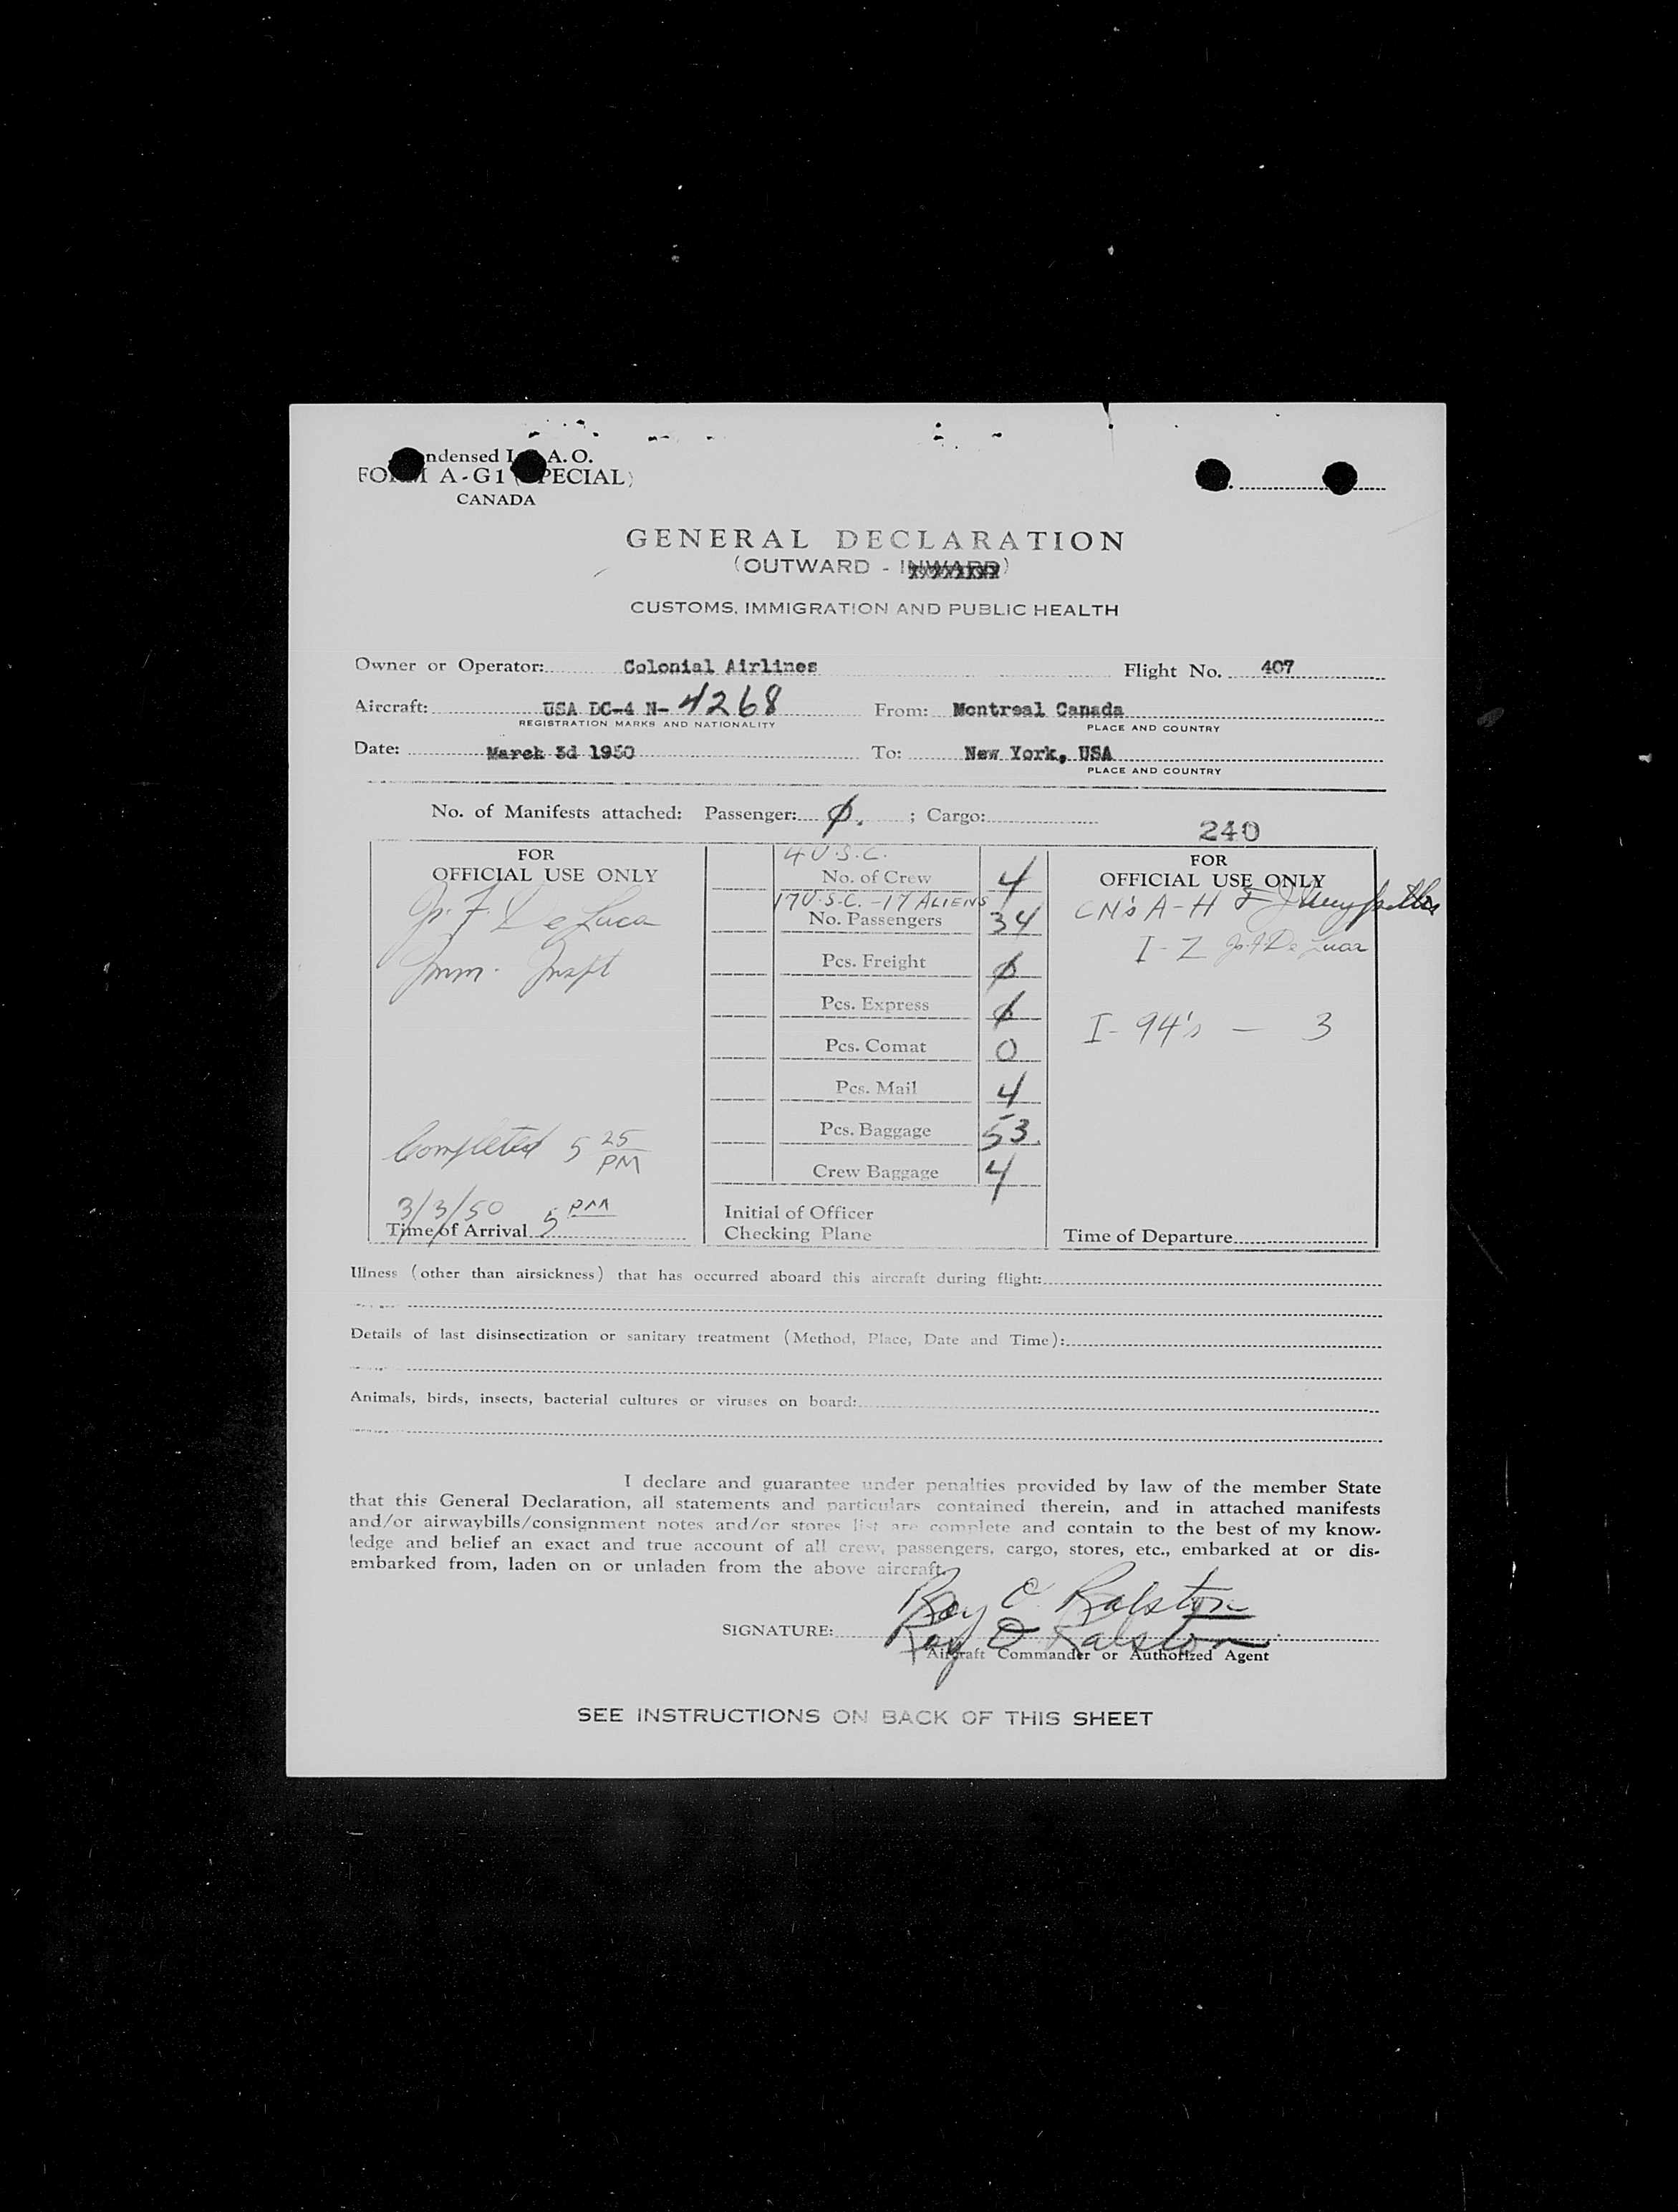 ndensed I A. O.
FO M A-G1 ( PECIAL)
CANADA
GENERAL DECLARATION
(OUTWARD - INWARD)
CUSTOMS, IMMIGRATION AND PUBLIC HEALTH
Owner or Operator: Colonial Airlines Flight No. 407
Aircraft: USA DC-4 N- 4268 From: Montreal Canada
REGISTRATION MARKS AND NATIONALITY PLACE AND COUNTRY
Date: March 3d 1950 To: New York, USA
PLACE AND COUNTRY
No. of Manifests attached: Passenger: Ø. ; Cargo:
240
FOR
OFFICIAL USE ONLY
De Luca
Imm. Inspt
Completed 5 25 PM
3/3/50 5 PM
Time of Arrival
4 U.S.C.
No. of Crew 4
17 U.S.C. - 17 ALIENS
No. Passengers 34
Pcs. Freight Ø
Pcs. Express Ø
Pcs. Comat 0
Pcs. Mail 4
Pcs. Baggage 53
Crew Baggage 4
Initial of Officer
Checking Plane
FOR
OFFICIAL USE ONLY
CN's A-H
I-Z De Luca
I-94's — 3
Time of Departure
Illness (other than airsickness) that has occurred aboard this aircraft during flight:
Details of last disinsectization or sanitary treatment (Method, Place, Date and Time):
Animals, birds, insects, bacterial cultures or viruses on board:
I declare and guarantee under penalties provided by law of the member State
that this General Declaration, all statements and particulars contained therein, and in attached manifests
and/or airwaybills/consignment notes and/or stores list are complete and contain to the best of my know-
ledge and belief an exact and true account of all crew, passengers, cargo, stores, etc., embarked at or dis-
embarked from, laden on or unladen from the above aircraft.
Roy C. Ralston
SIGNATURE: Roy D Ralston
Aircraft Commander or Authorized Agent
SEE INSTRUCTIONS ON BACK OF THIS SHEET